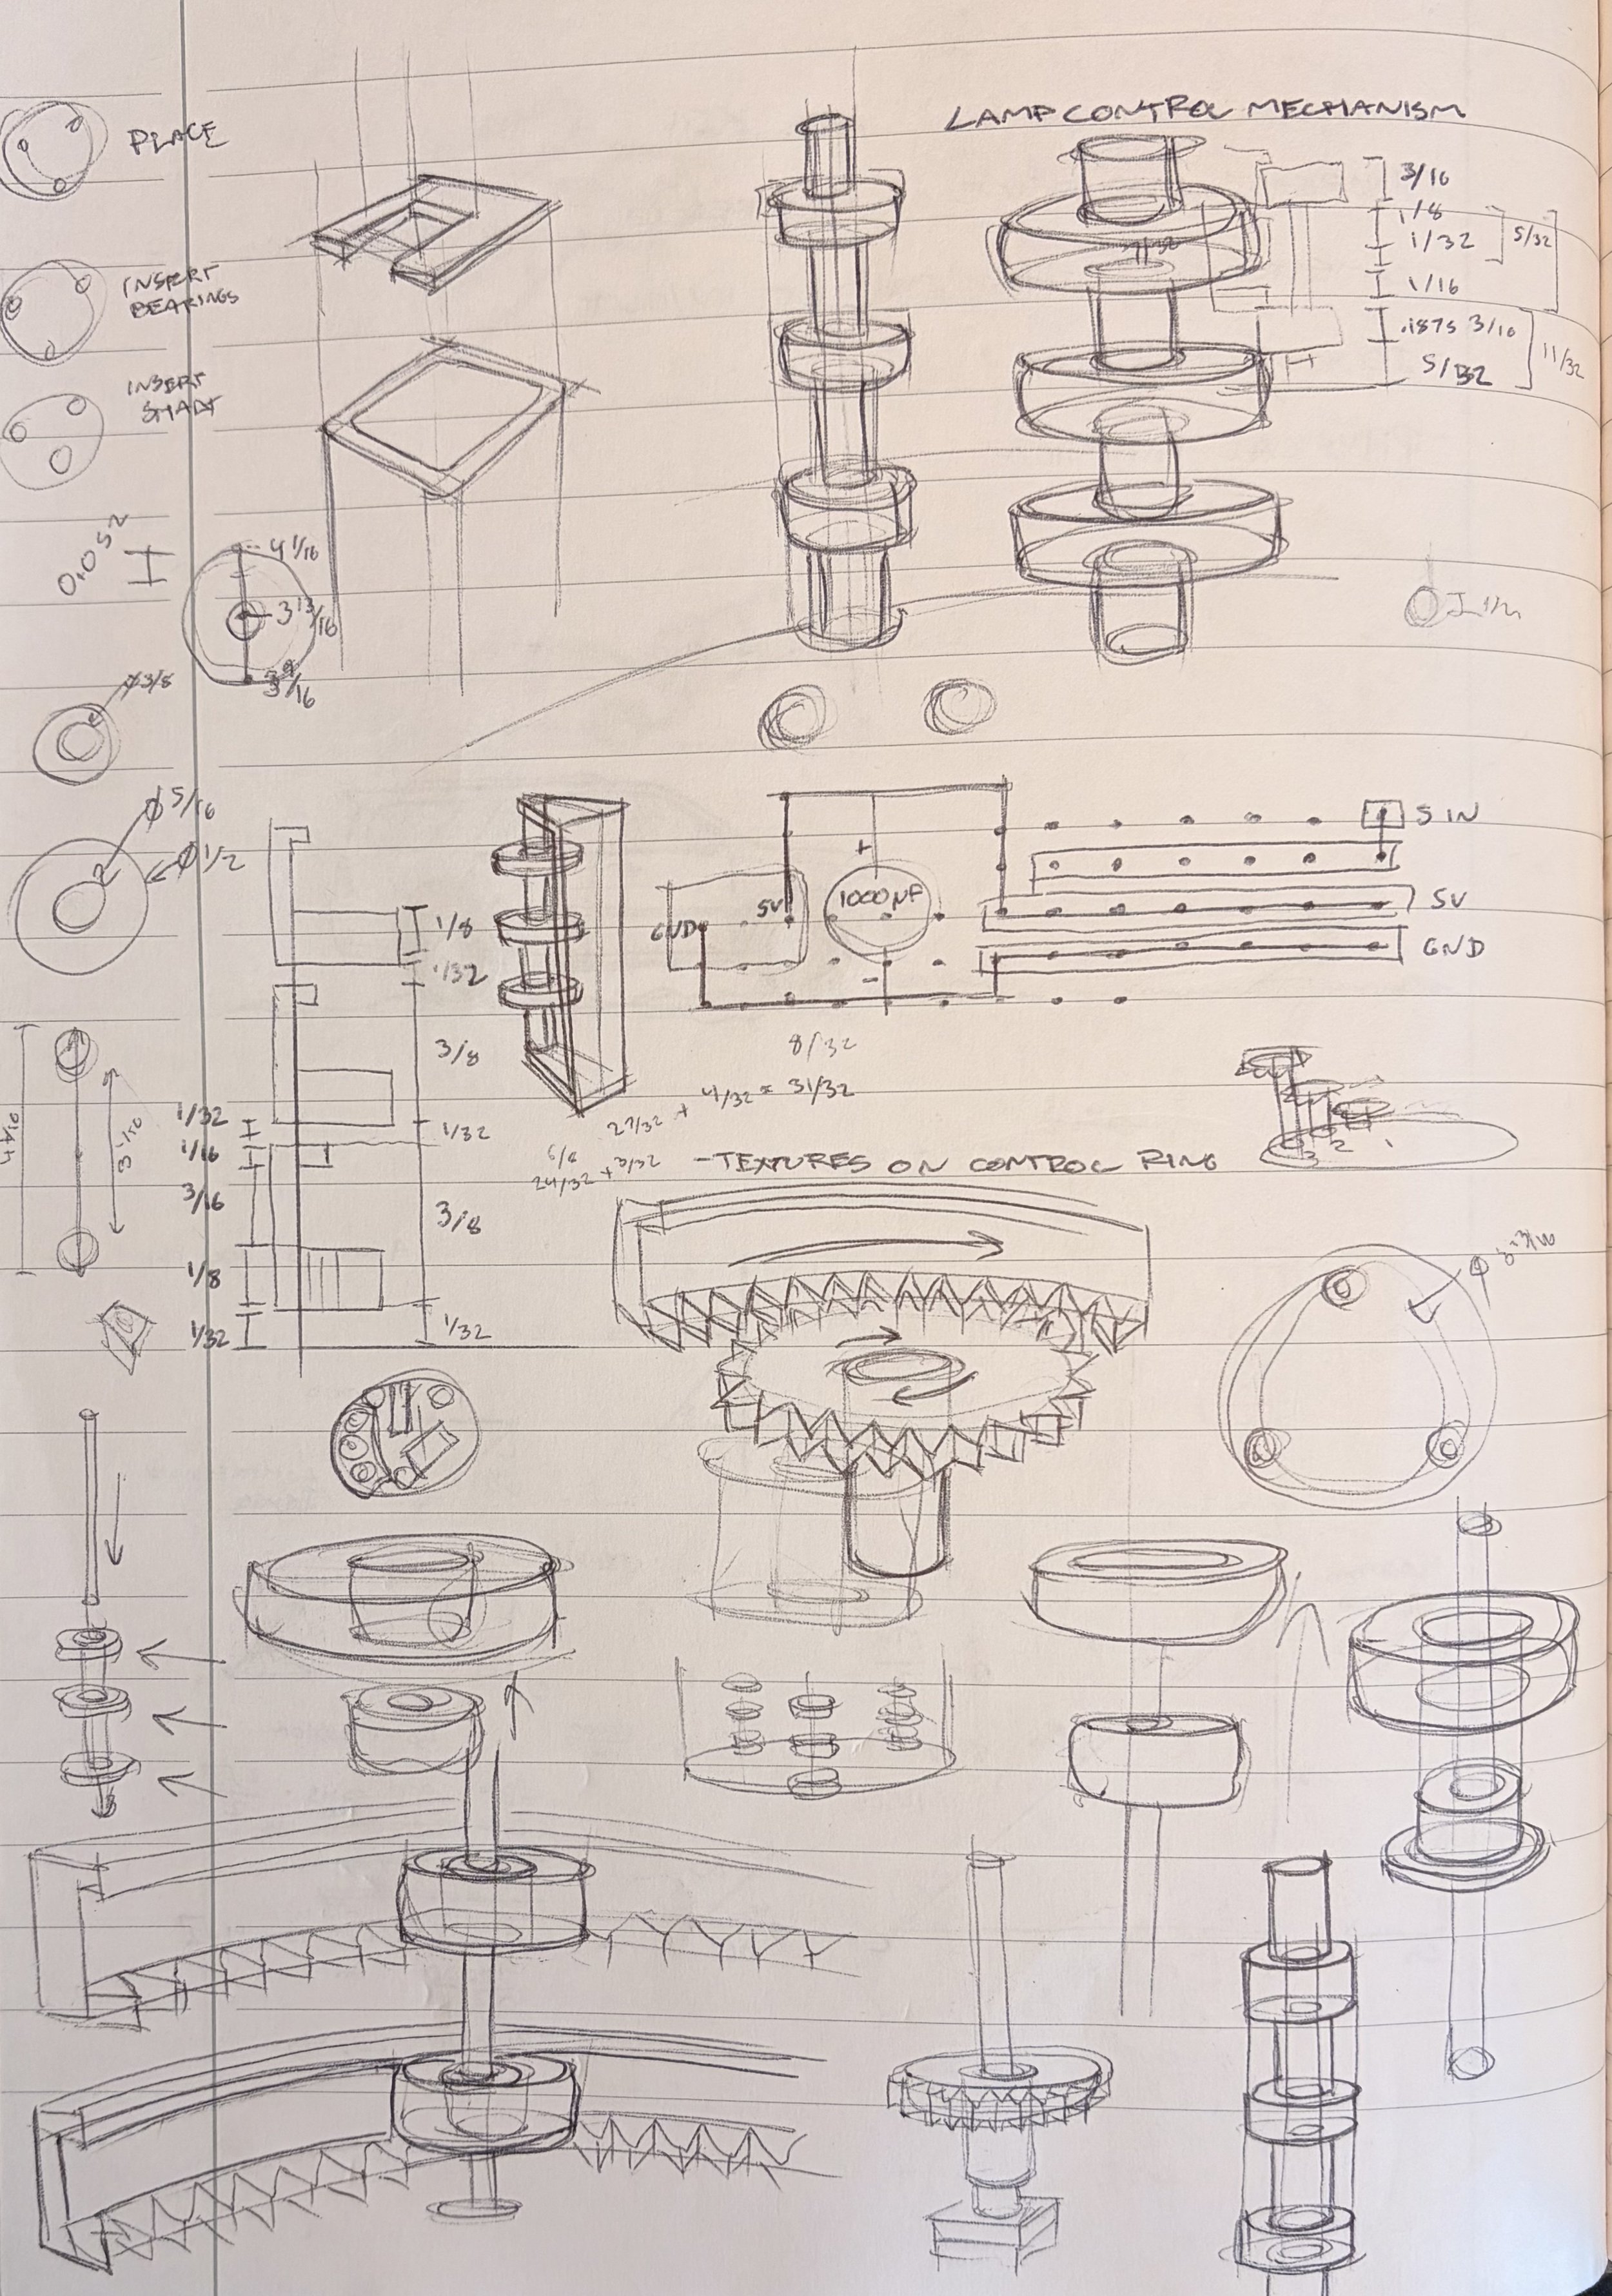 LAMP CONTROL MECHANISM
PLACE
INSERT
BEARINGS
INSERT
SHAFT
3/16
1/8
1/32
5/32
1/16
.1875 3/16
5/32
11/32
0.052
4 1/16
3 13/16
3 9/16
Ø3/8
Ø 5/16
Ø 1/2
1/8
1/32
3/8
1/32
3/8
1/32
1/32
1/16
3/16
1/8
1/32
5V
GND
+
1000µF
-
5 IN
5V
GND
8/32
27/32 + 4/32 = 31/32
24/32 + 3/32
-TEXTURES ON CONTROL RING
3 2 1